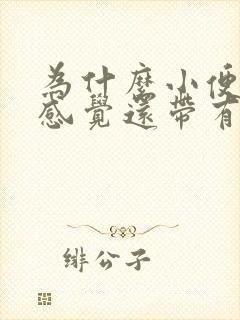 為什麼小便
感覺還帶有
緋公子